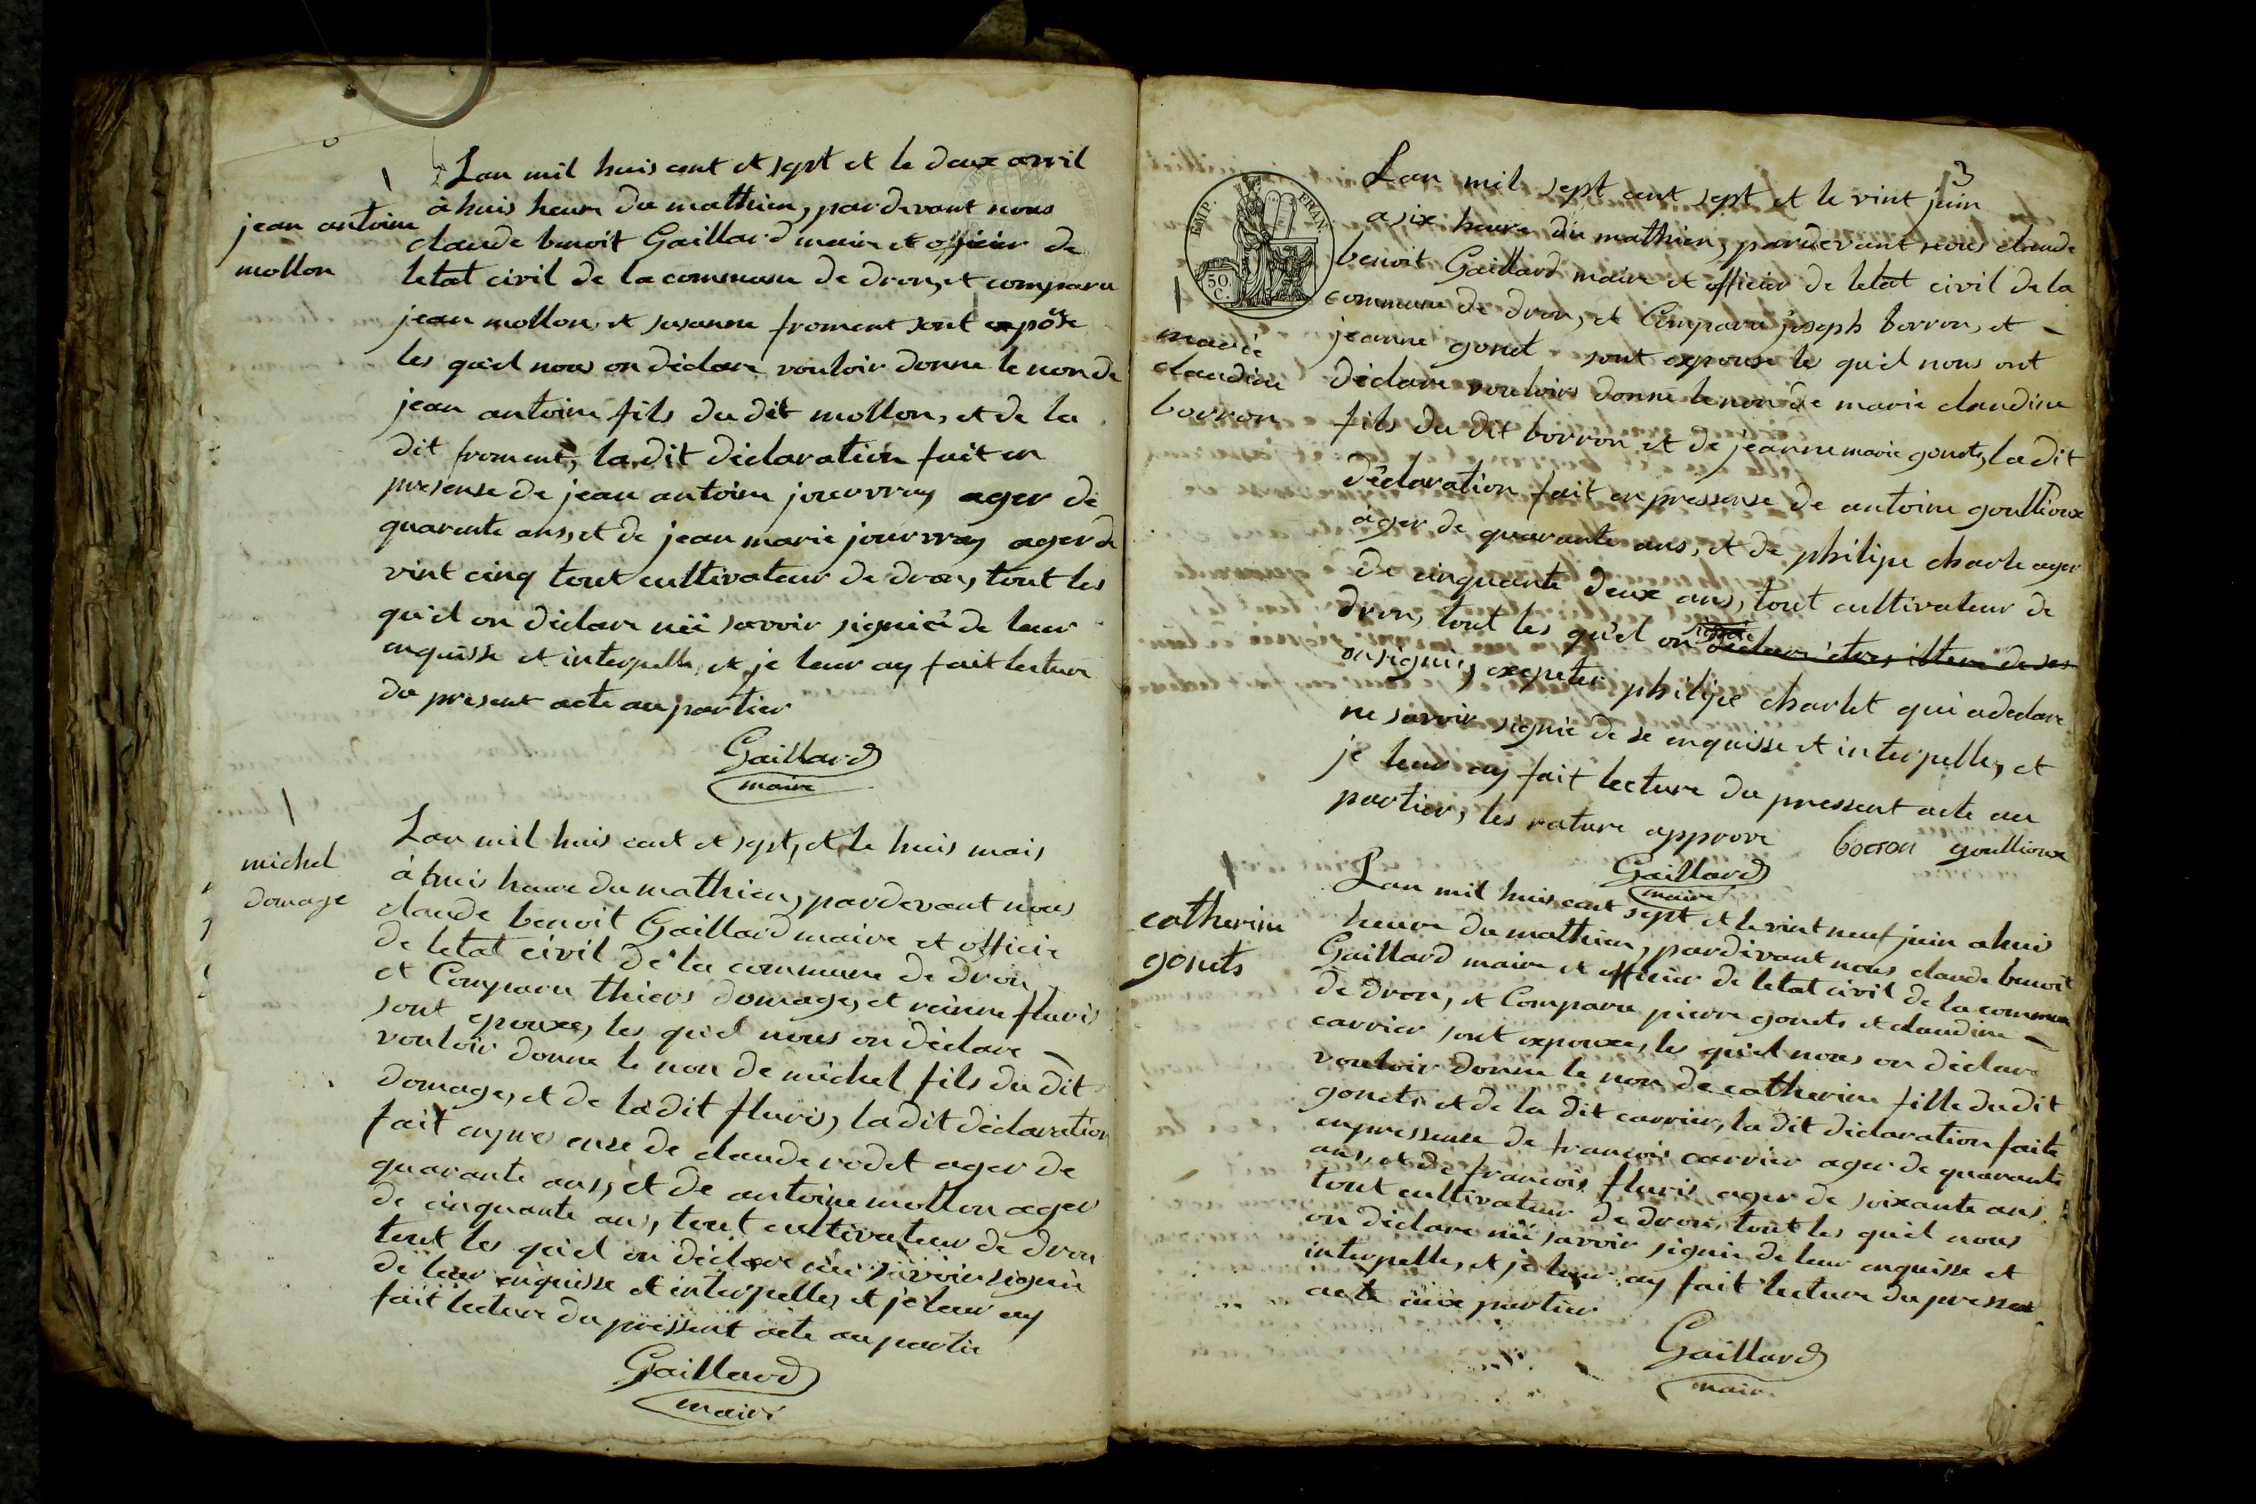 Lan mil huis cent et sept et le deux avril
à huis heure du mathien, pardevant nous
jean antoine
mollon
claude benoit Gaillard maire et officier de
letat civil de la commune de dron, et comparu
jean mollon, et susanne froment sont
les quel nous on déclare vouloir donne le non de
jean antoine fils du dit mollon, et de la
dit froment, la dit déclaration fait en
presense de jean antoine jouvray ager de
quarante ans, et de jean marie jouvray ager de
vint cinq tout cultivateur de dron, tout les
quel on déclare néé savoir signié de leur
enquisse et interpelle, et je leur ay fait lecture
du present acte au partier
Gaillard
maire
michel
domage
Lan mil huis cent et sept, et le huis mais
à huis heure du mathien, pardevant nous
claude benoit Gaillard maire et officie
de letat civil de la commune de dron
et Comparu thiers domage, et reinne fluris
sont epouxe, les quel nous on déclare
vouloir donne le non de michel fils du dit
domage, et de la dit fluris, la dit déclaration
fait en pres ense de claude rodet ager de
quarante ans, et de antoine mollon ager
de cinquante ans, tout cultivateur de dron
tout les quel on déclare néé savoir signie
de leur enquisse et interpelle, et je leur ay
fait lecture du pressent acte au partie
Gaillard
maire
3
EMP. FRAN.
50. C.
Lan mil sept cent sept et le vint juin
a six heure du mathien, pardevant nous claude
benoit Gaillard maire et officier de letat civil de la
commune de dron, et Comparu joseph borron, et
marie
claudine
borron
jeanne gonet sont expouse les quel nous ont
déclare vouloire donné le non de marie claudine
fils du dit borron et de jeanne marie gonets, la dit
déclaration fait en pressense de antoine goullioux
àger de quarante ans, et de philipe charle ager
de cinquante deux ans, tout cultivateur de
dron, tout les quel on
on signié, exepeter philipe charlet qui a declare
ne savoir signié de se enquisse et interpelle, et
je leur ay fait lecture du pressent acte au
partier, les rature approve borron goullioux
Gaillard
maire
catherine
gonets
Lan mil huis cent sept et le vint neuf juin a huis
heure du mathien, pardivant nous claude benoit
Gaillard maire et officier de letat civil de la commune
de dron, et Comparu pierre gonets et claudine
carrier sont expouxe, les quel nous on déclare
vouloir donne le non de catherine fille du dit
gonets et de la dit carrier, la dit déclaration faite
enpressense de francois carrier ager de quarante
ans, et de francois fluris ager de soixante ans
tout cultivateur de dron, tout les quel nous
on déclare néé savoir signie de leur enquisse et
interpelle, et je leur ay fait lecture du pressent
acte aux partier
Gaillard
maire